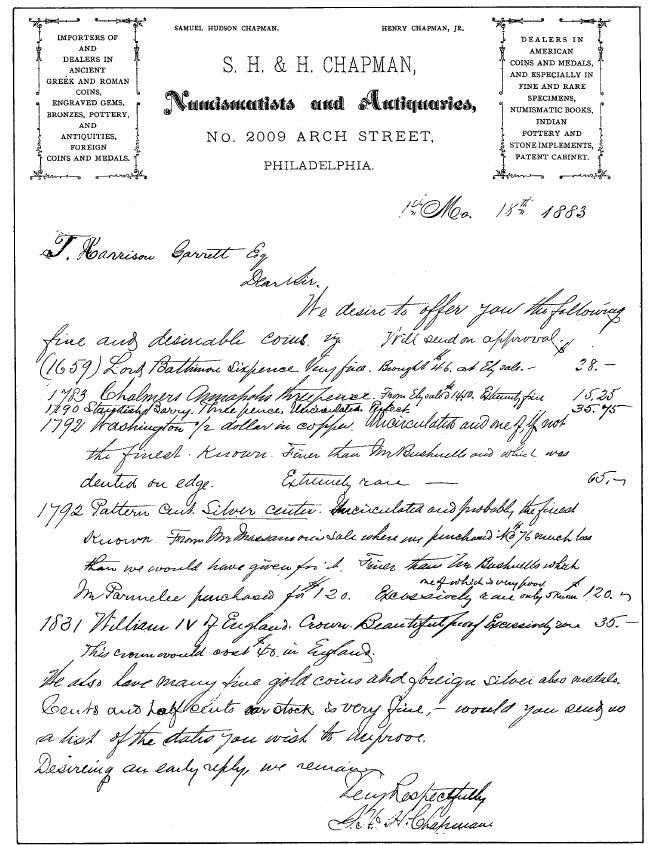 SAMUEL HUDSON CHAPMAN.
HENRY CHAPMAN, JR.
IMPORTERS OF
AND
DEALERS IN
ANCIENT
GREEK AND ROMAN
COINS,
ENGRAVED GEMS,
BRONZES, POTTERY,
AND
ANTIQUITIES,
FOREIGN
COINS AND MEDALS.
S. H. & H. CHAPMAN,
Numismatists and Antiquaries,
No. 2009 ARCH STREET,
PHILADELPHIA.
DEALERS IN
AMERICAN
COINS AND MEDALS,
AND ESPECIALLY IN
FINE AND RARE
SPECIMENS,
NUMISMATIC BOOKS,
INDIAN
POTTERY AND
STONE IMPLEMENTS,
PATENT CABINET.
Mo. 18th 1883
T. Harrison Garrett Esq
Dear Sir.
We desire to offer you the following
fine and desireable coins. viz Will send on approval.
(1659) Lord Baltimore Sixpence Very fine. Brought $46. at Ely sale. - $38.-
1783 Chalmers Annapolis threepence. From Ely sale $14.40. Extremely fine 15.25
1790 Standish Barry. Threepence. Uncirculated. Perfect. 35.75
1792 Washington 1/2 dollar in copper. Uncirculated and one of if not
the finest Known. Finer than Mr Bushnells and which was
dented on edge. Extremely rare — 65.-
1792 Pattern Cent. Silver center. Uncirculated and probably the finest
Known. From Mr Maris sale where we purchased it $76 much less
than we would have given for it. Finer than Mr Bushnells which
Mr Parmelee purchased for $120. Excessively rare only 3 known one of which is very poor $120.-
1831 William IV of England. Crown. Beautiful proof Excessively rare 35.-
This crown would cost $40. in England.
We also have many fine gold coins and foreign silver also medals.
Cents and half cents our stock is very fine, - would you send us
a list of the dates you wish to improve.
Desireing an early reply, we remain
Very Respectfully
S. H. & H. Chapman